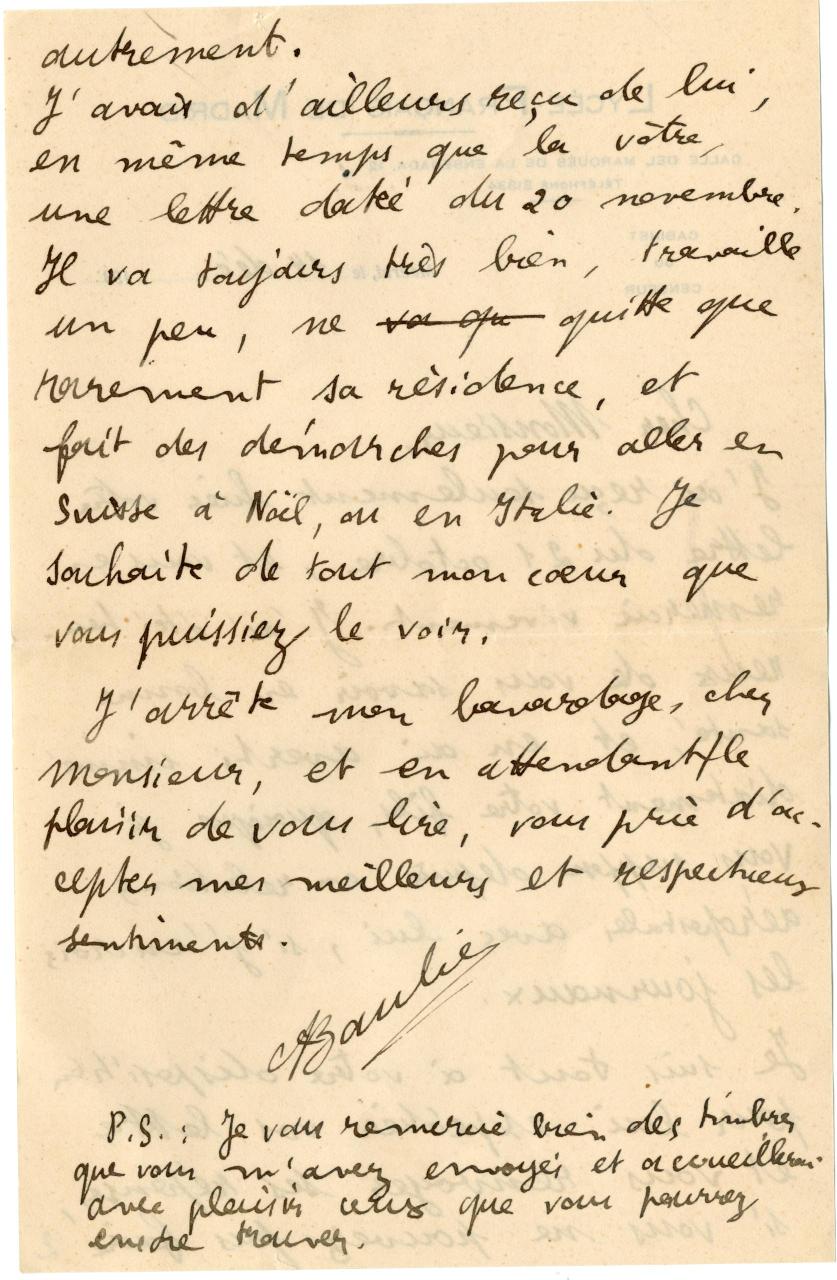 autrement.
J'avais d'ailleurs reçu de lui,
en même temps que la vôtre,
une lettre datée du 20 novembre.
Il va toujours très bien, travaille
un peu, ne va qu quitte que
rarement sa résidence, et
fait des démarches pour aller en
Suisse à Noël, ou en Italie. Je
souhaite de tout mon cœur que
vous puissiez le voir.
J'arrête mon bavardage, cher
Monsieur, et en attendant le
plaisir de vous lire, vous prie d'ac-
cepter mes meilleurs et respectueux
sentiments.
P.S. : Je vous remercie bien des timbres
que vous m'avez envoyés et accueillerai
avec plaisir ceux que vous pourrez
encore trouver.